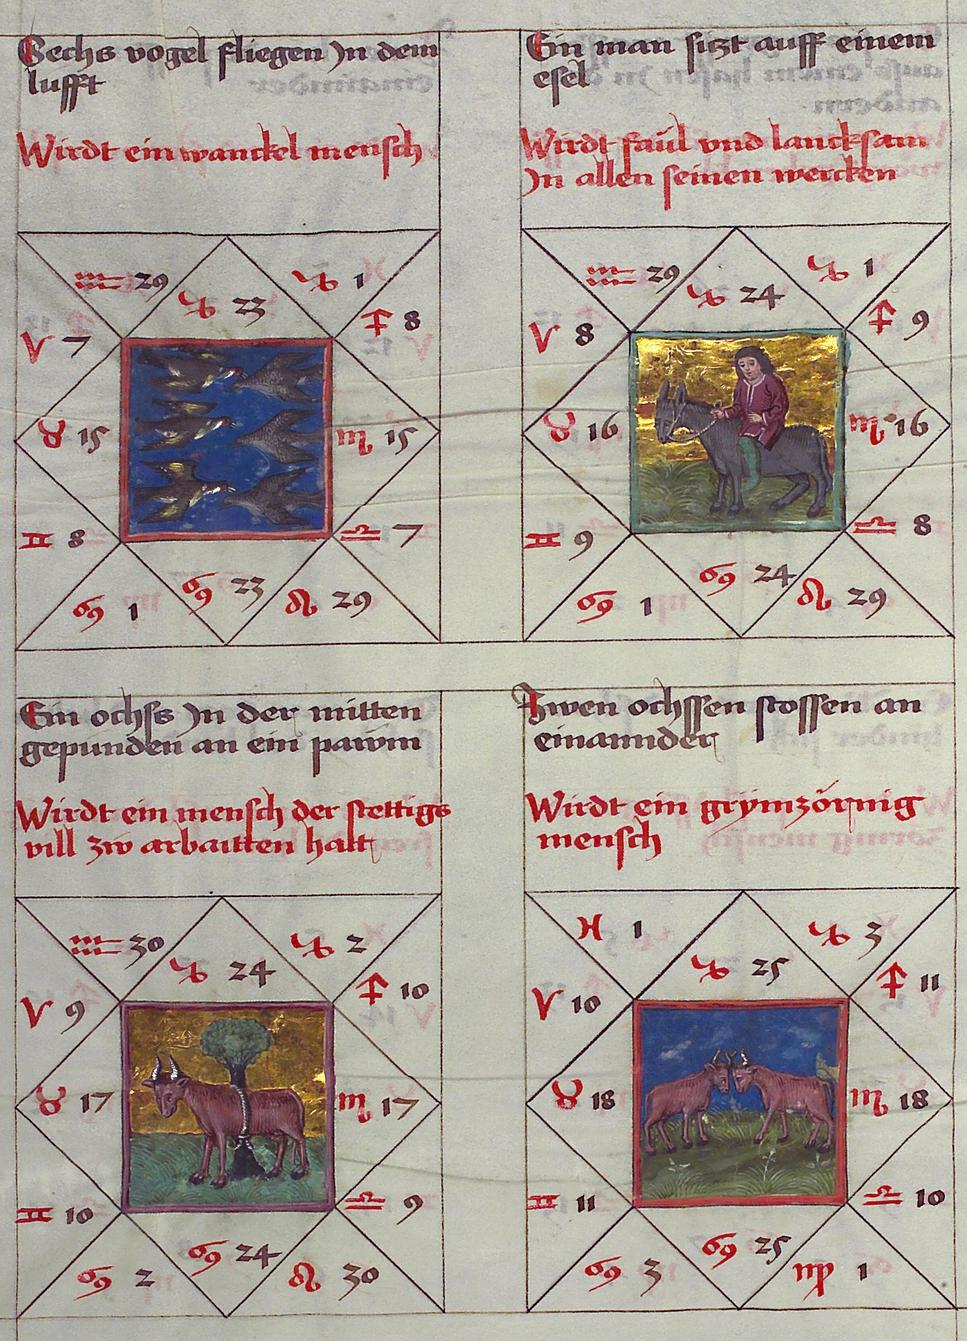 Sechs vogel fliegen Jn dem
lufft
Wirdt ein wanckel mensch
♒ 29 ♑ 23 ♑ 1
♈ 7 ♐ 8
♉ 15 ♏ 15
♊ 8 ♎ 7
♋ 1 ♋ 23 ♌ 29
Ein man sitzt auff einem
esel
Wirdt faül vnd lancksam
Jn allen seinen wercken
♒ 29 ♑ 24 ♑ 1
♈ 8 ♐ 9
♉ 16 ♏ 16
♊ 9 ♎ 8
♋ 1 ♋ 24 ♌ 29
Ein ochss Jn der mitten
gepunden an ein pawm
Wirdt ein mensch der stettigs
vill zw arbaitten hatt
♒ 30 ♑ 24 ♑ 2
♈ 9 ♐ 10
♉ 17 ♏ 17
♊ 10 ♎ 9
♋ 2 ♋ 24 ♌ 30
Zwen ochssen stossen an
einannder
Wirdt ein grymzörnig
mensch
♓ 1 ♑ 25 ♑ 3
♈ 10 ♐ 11
♉ 18 ♏ 18
♊ 11 ♎ 10
♋ 3 ♋ 25 ♍ 1